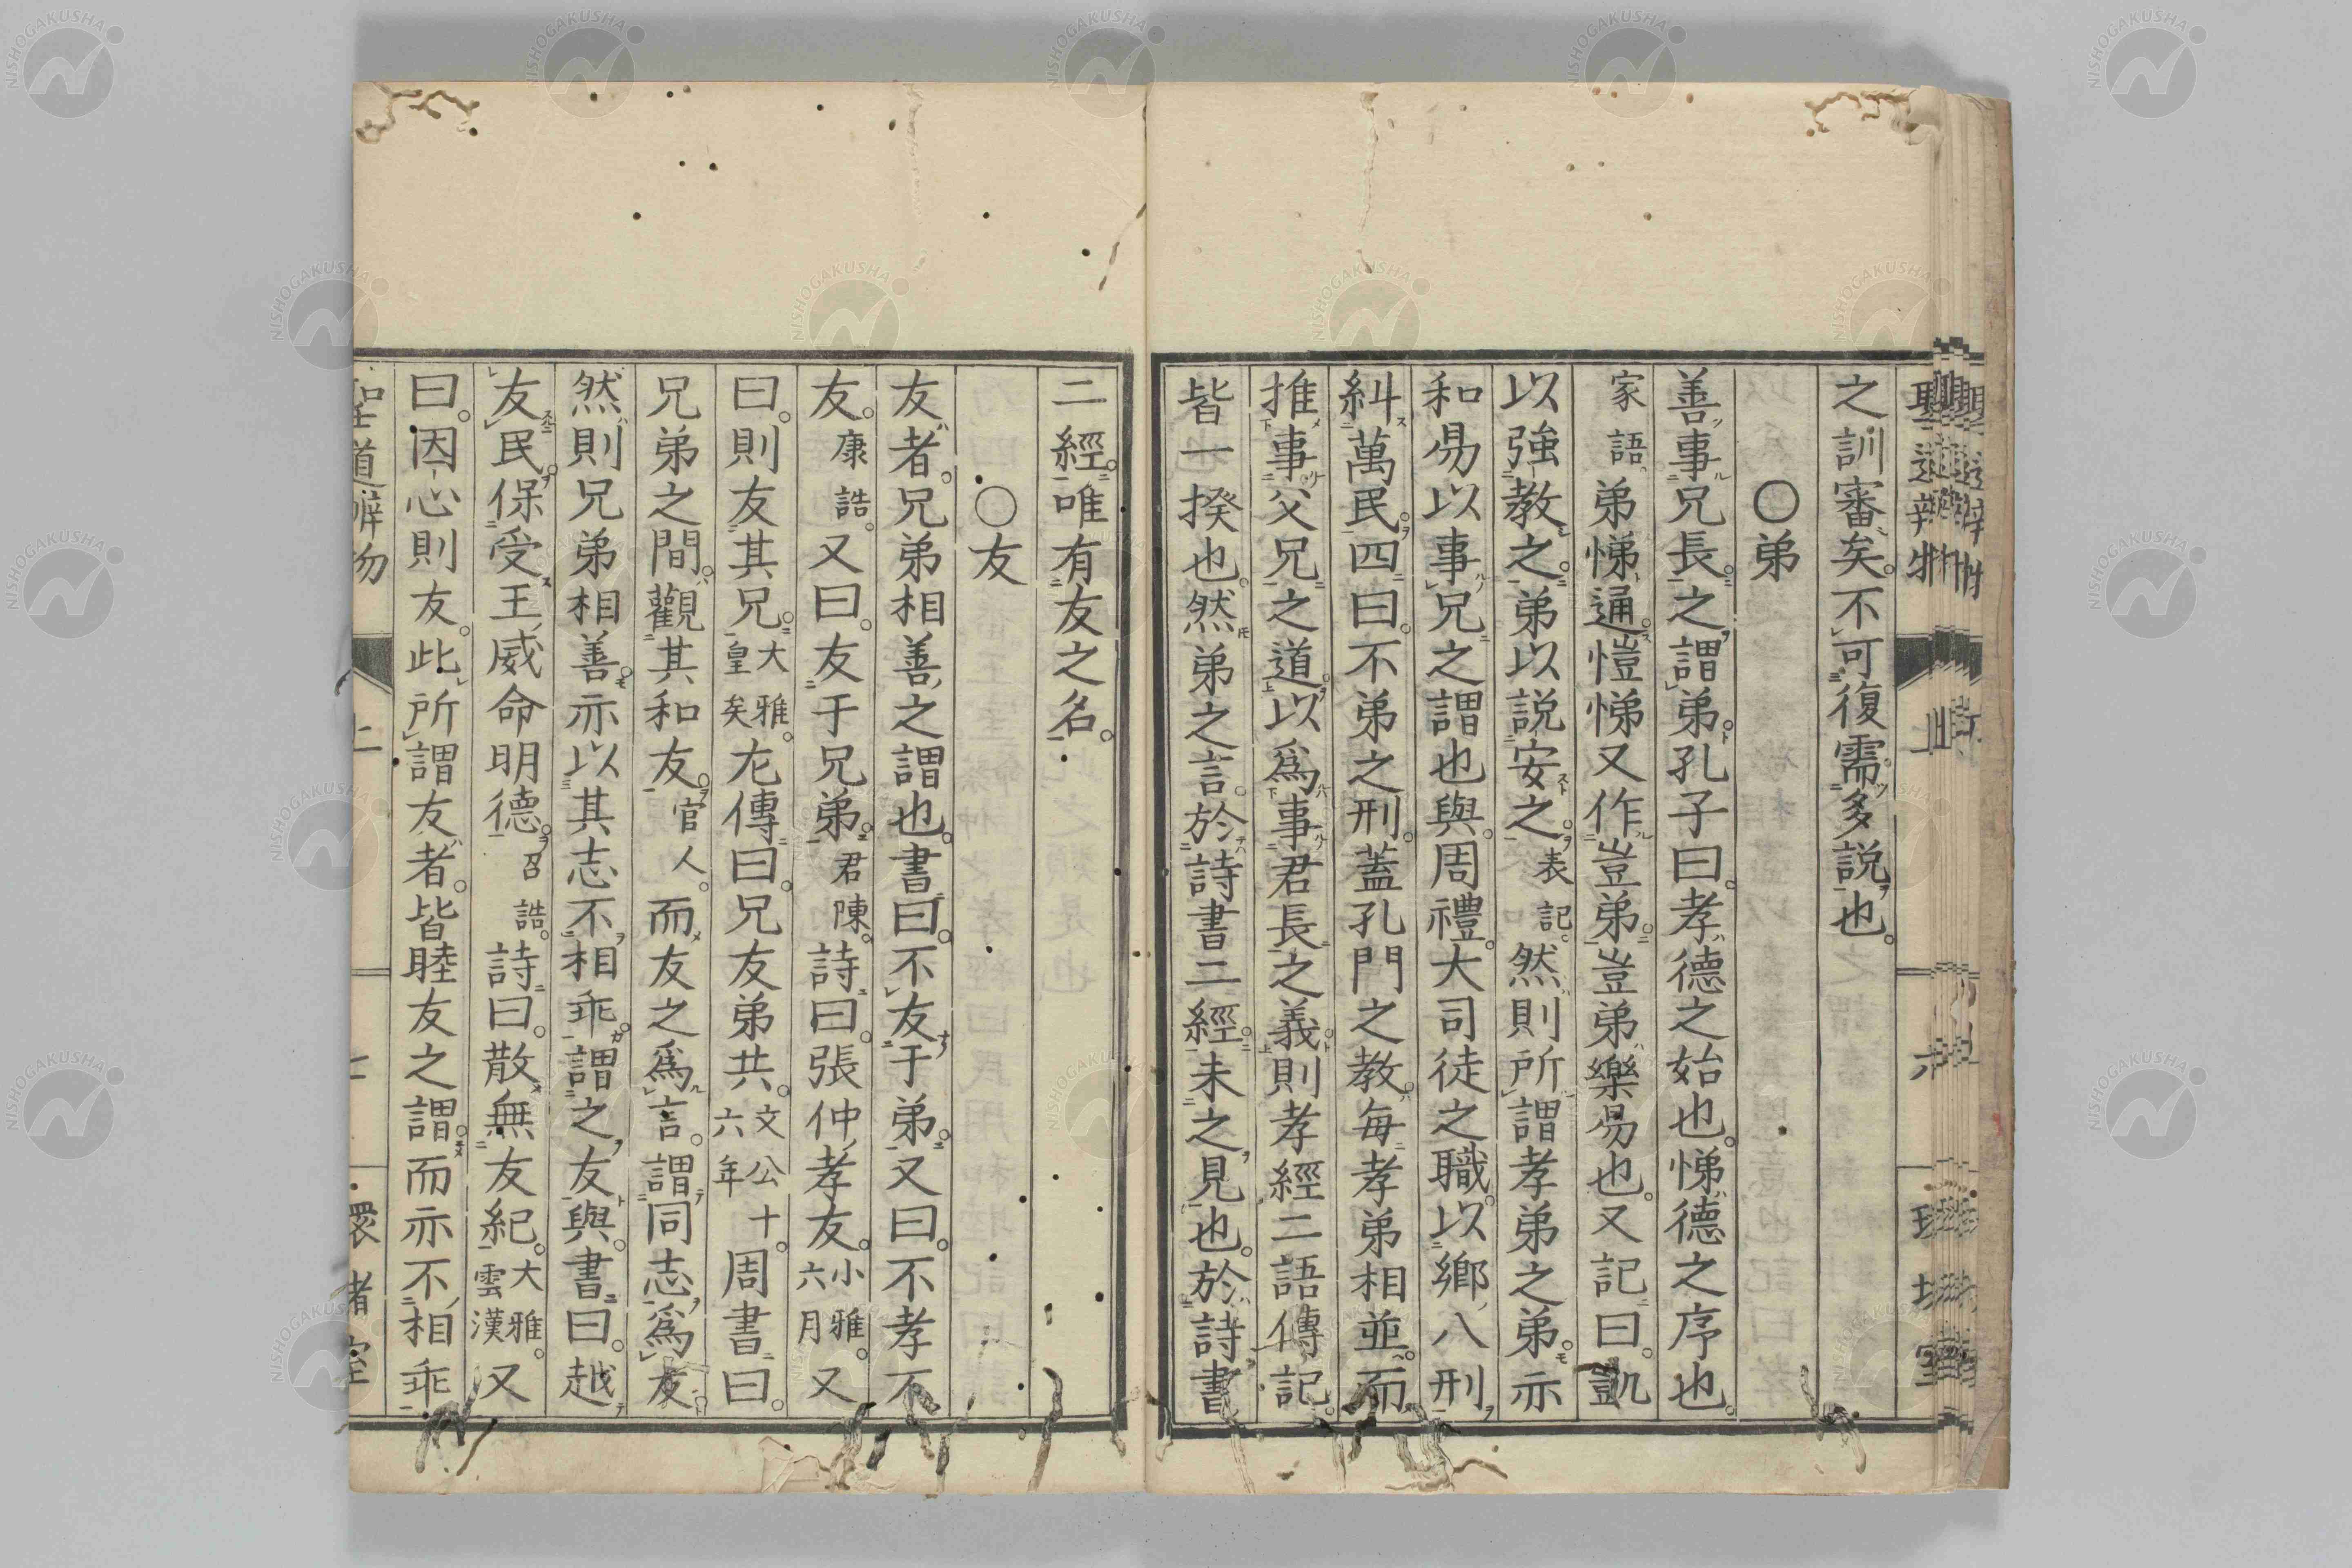 之訓審矣。不可復需多説也。
〇弟
善事兄長之謂弟。孔子曰。孝德之始也。悌德之序也。
家語 弟悌通。愷悌又作豈弟。豈弟樂易也。又記曰。凱
以強教之。弟以説安之。表記。然則所謂孝弟之弟。亦
和易以事兄之謂也與。周禮。大司徒之職。以鄉八刑
糾萬民。四曰。不弟之刑。蓋孔門之教。每孝弟相並。而
推事父兄之道。以爲事君長之義。則孝經二語傳記。
皆一揆也。然弟之言。於詩書二經。未之見也。於詩書
二經。唯有友之名。
〇友
友者。兄弟相善之謂也。書曰。不友于弟。又曰。不孝不
友。康誥。又曰。友于兄弟。君陳。詩曰。張仲孝友。小雅六月。又
曰。則友其兄。大雅皇矣。尨傳曰。兄友弟共。文公十六年 周書曰。
兄弟之間。觀其和友。官人。而友之爲言。謂同志爲友。
然則兄弟相善。亦以其志不相乖。謂之友與。書曰。越
友民。保受王威命明德。召誥。詩曰。散無友紀。大雅雲漢。又
曰。因心則友。此所謂友者。皆睦友之謂。而亦不相乖